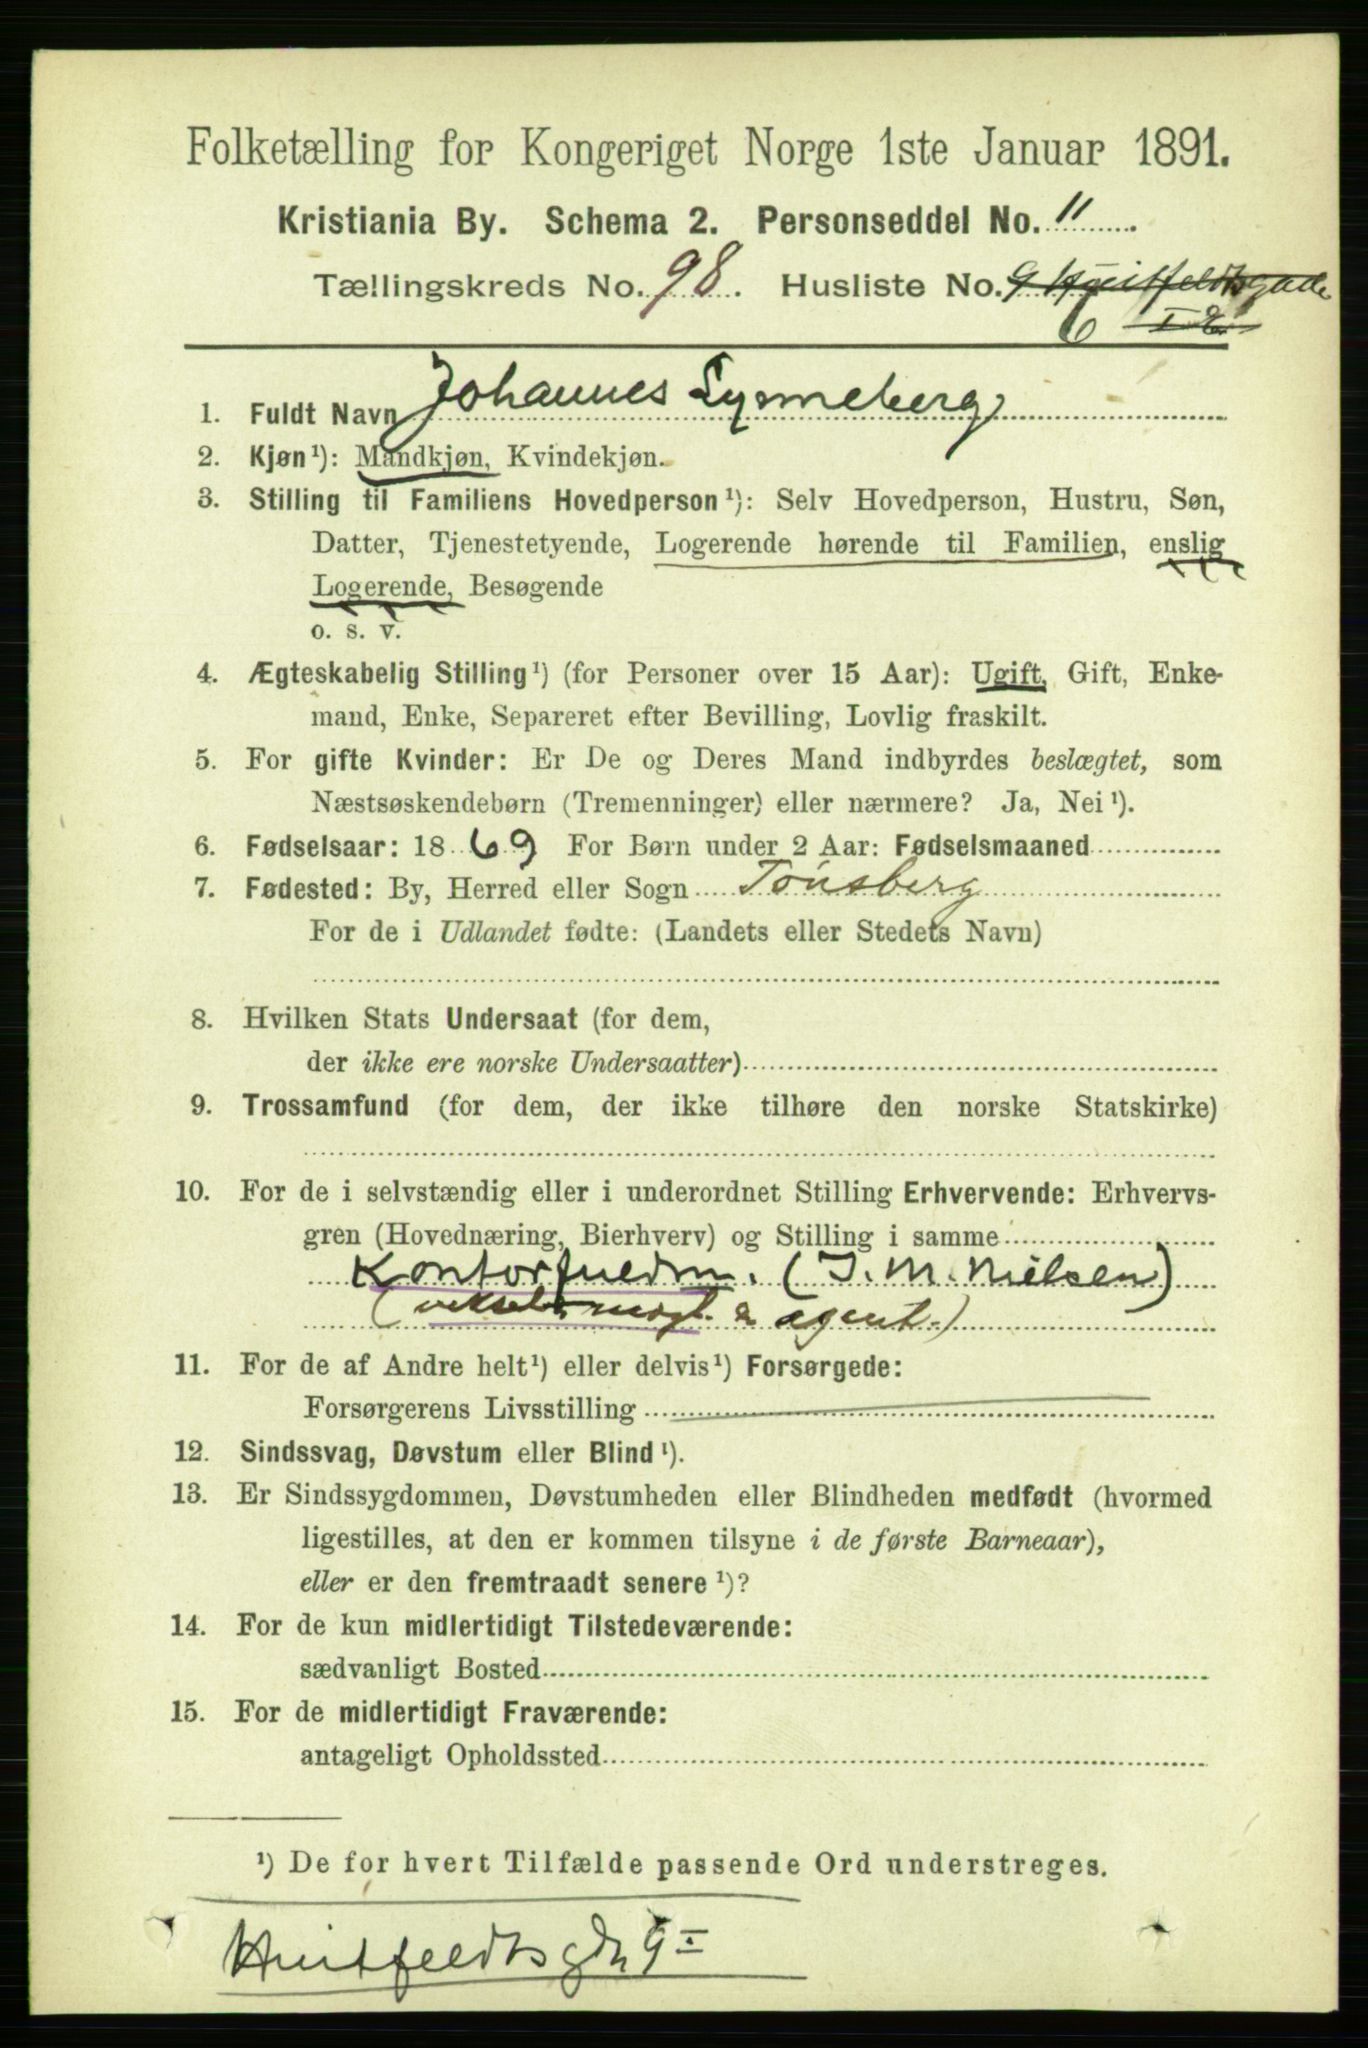 Folketælling for Kongeriget Norge 1ste Januar 1891.
Kristiania By. Schema 2. Personseddel No. 11
Tællingskreds No. 98. Husliste No. 9 Huitfeldtsgade
6 I
1. Fuldt Navn Johannes Lynneberg
2. Kjøn¹): Mandkjøn, Kvindekjøn.
3. Stilling til Familiens Hovedperson¹): Selv Hovedperson, Hustru, Søn,
Datter, Tjenestetyende, Logerende hørende til Familien, enslig
Logerende, Besøgende
o. s. v.
4. Ægteskabelig Stilling¹) (for Personer over 15 Aar): Ugift, Gift, Enke-
mand, Enke, Separeret efter Bevilling, Lovlig fraskilt.
5. For gifte Kvinder: Er De og Deres Mand indbyrdes beslægtet, som
Næstsøskendebørn (Tremenninger) eller nærmere? Ja, Nei¹).
6. Fødselsaar: 1869 For Børn under 2 Aar: Fødselsmaaned
7. Fødested: By, Herred eller Sogn Tönsberg
For de i Udlandet fødte: (Landets eller Stedets Navn)
8. Hvilken Stats Undersaat (for dem,
der ikke ere norske Undersaatter)
9. Trossamfund (for dem, der ikke tilhøre den norske Statskirke)
10. For de i selvstændig eller i underordnet Stilling Erhvervende: Erhvervs-
gren (Hovednæring, Bierhverv) og Stilling i samme
Kontorfuldm. (J. M. Nielsen)
(veksel & agent.)
11. For de af Andre helt¹) eller delvis¹) Forsørgede:
Forsørgerens Livsstilling
12. Sindssvag, Døvstum eller Blind¹).
13. Er Sindssygdommen, Døvstumheden eller Blindheden medfødt (hvormed
ligestilles, at den er kommen tilsyne i de første Barneaar),
eller er den fremtraadt senere¹)?
14. For de kun midlertidigt Tilstedeværende:
sædvanligt Bosted
15. For de midlertidigt Fraværende:
antageligt Opholdssted
¹) De for hvert Tilfælde passende Ord understreges.
Huitfeldtsgdn 9 I